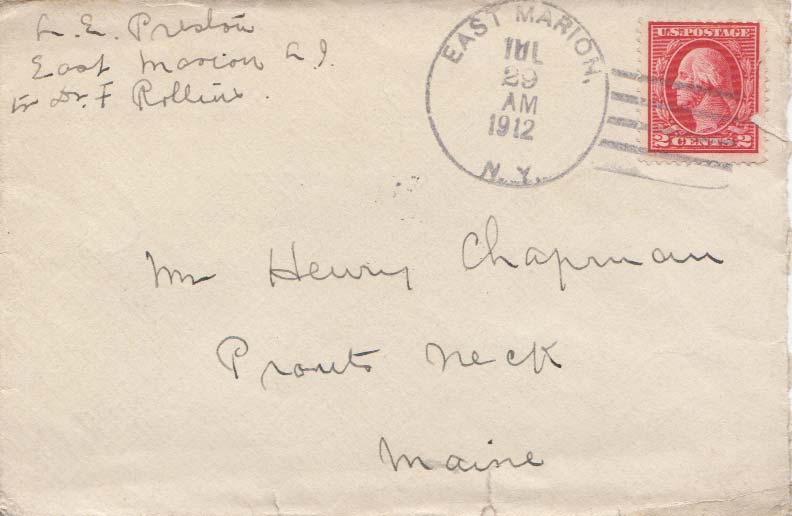 L. E. Preston
East Marion L I.
Dr. F Rollins.
EAST MARION,
JUL
29
AM
1912
N.Y.
U.S. POSTAGE
2 CENTS 2
Mr Henry Chapman
Prouts Neck
Maine